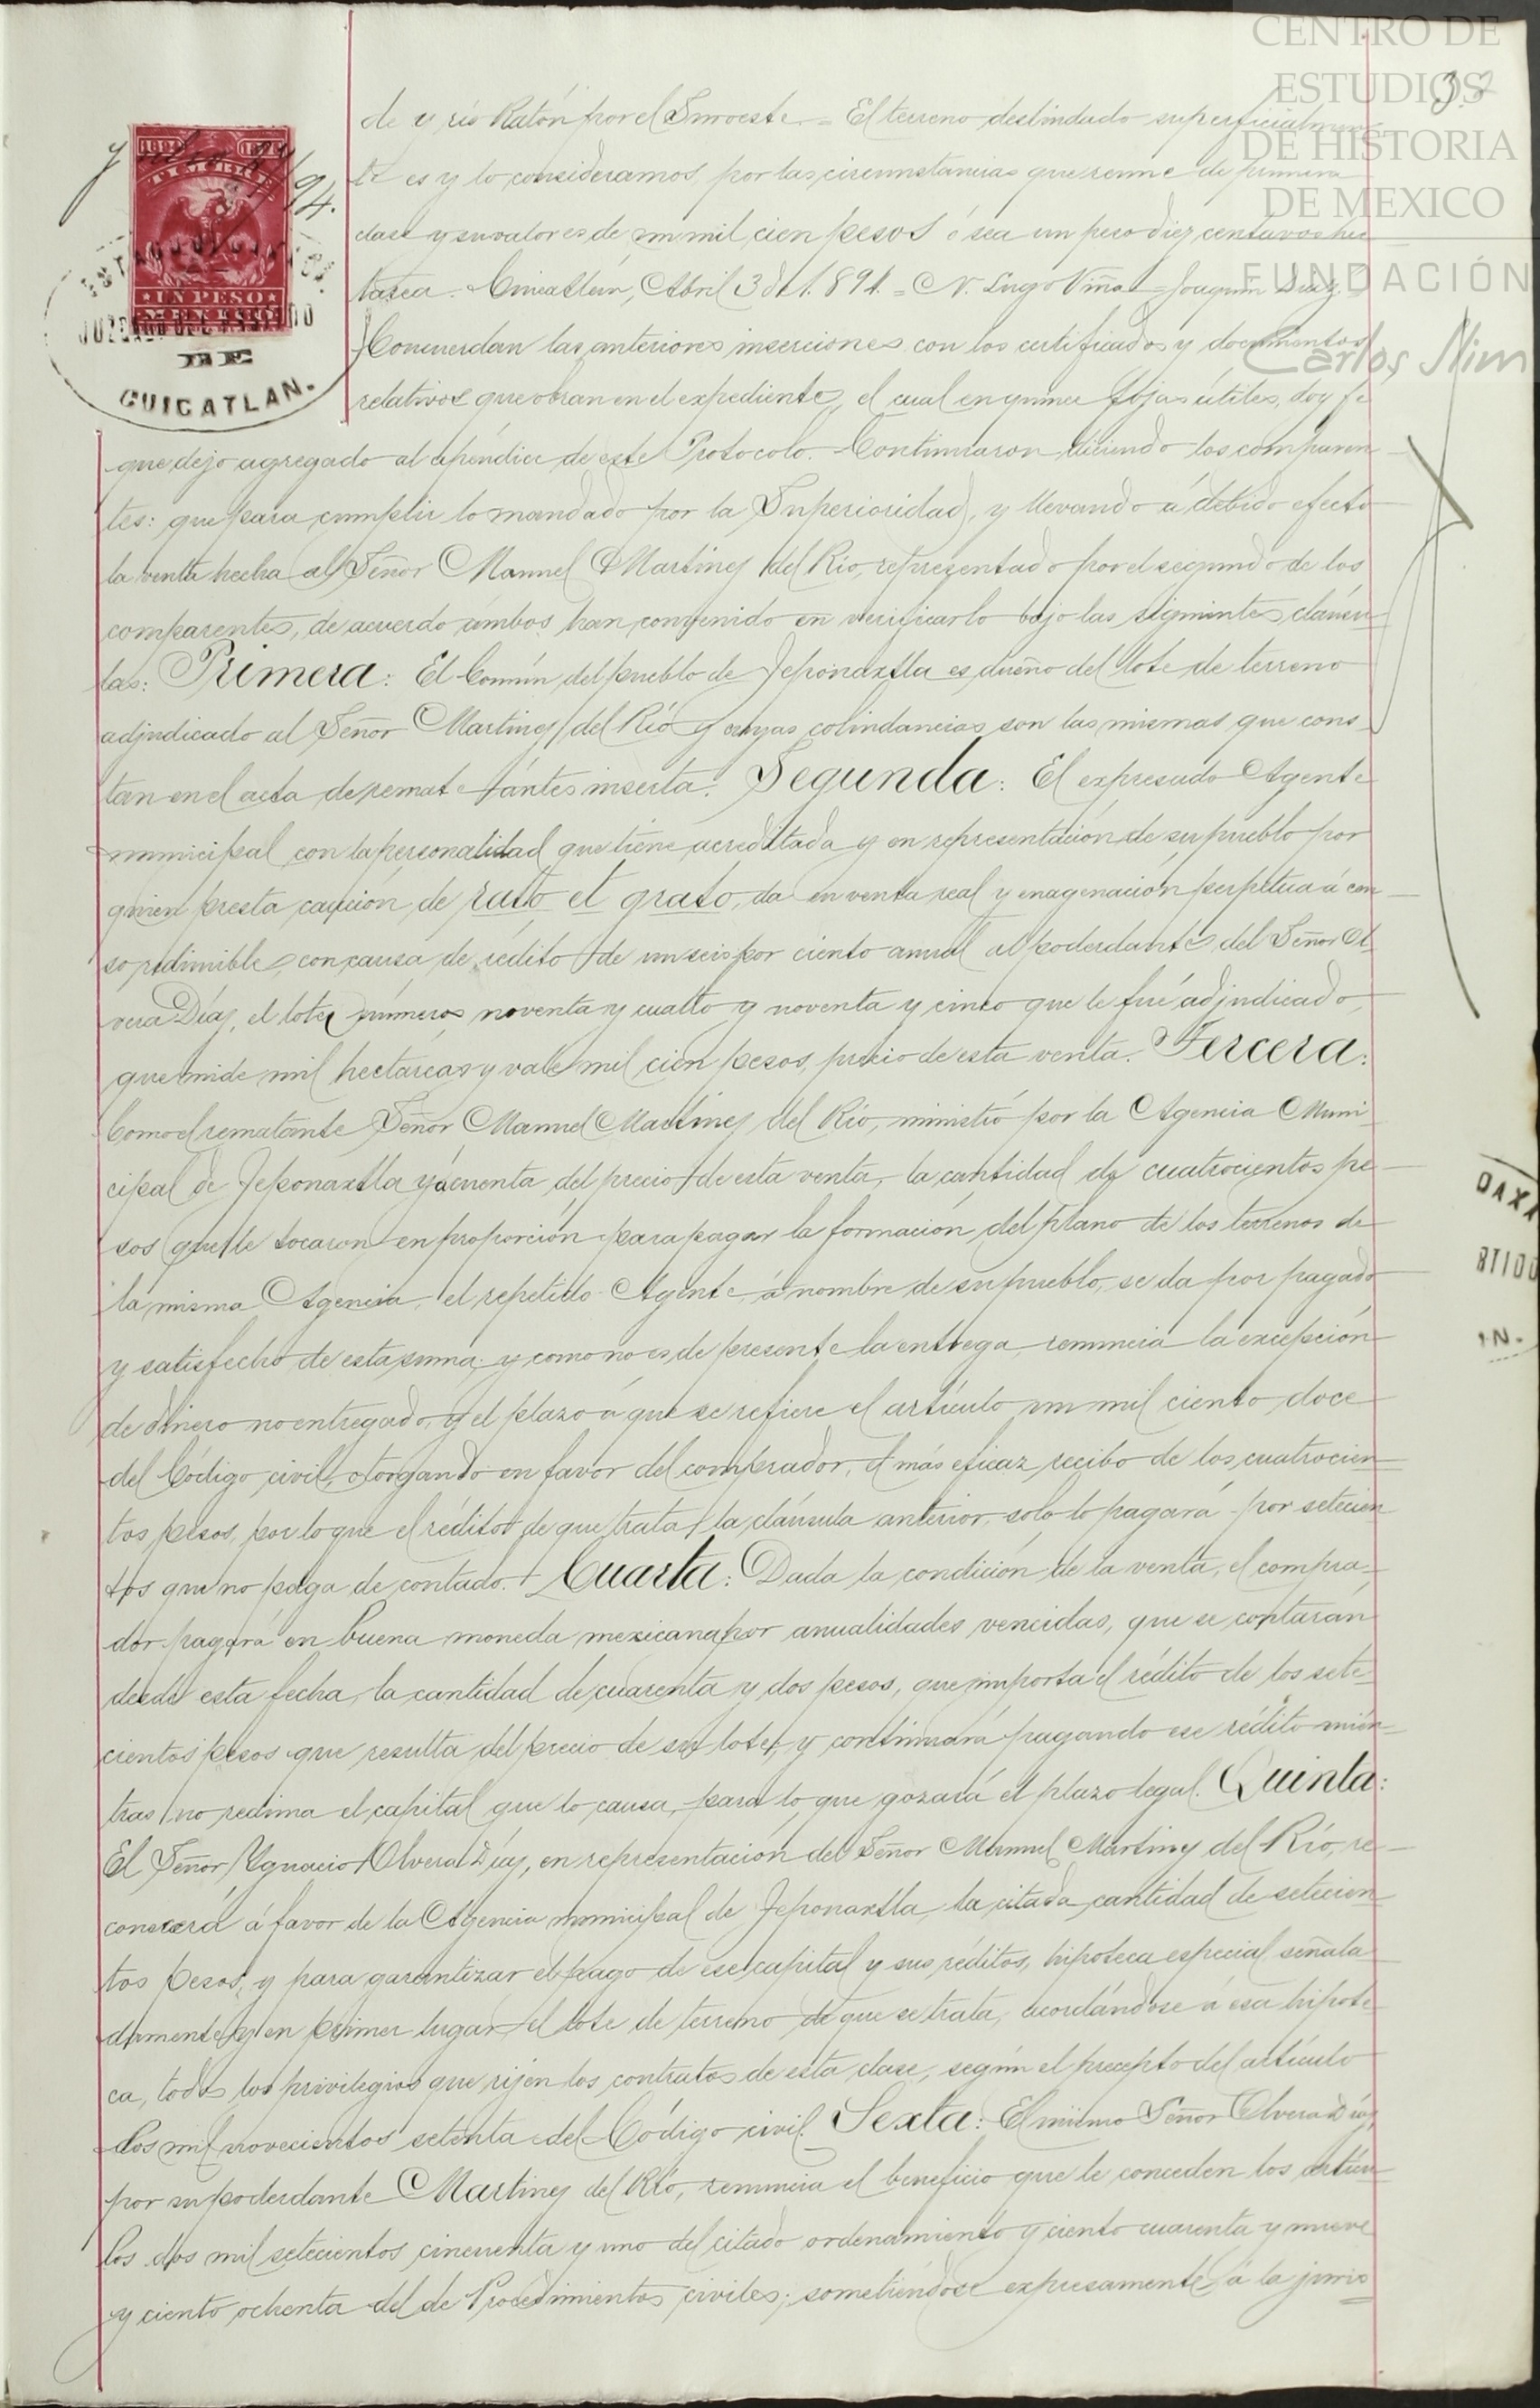 CENTRO DE
ESTUDIOS
DE HISTORIA
DE MEXICO
FUNDACIÓN
Carlos Slim
32
1894 1895
TIMBRE
UN PESO
MEXICO
94.
JUZGADO DEL PARTIDO
DE
CUICATLAN.
de y río Ratón por el Suroeste. = El terreno deslindado superficialmen
te es y lo consideramos por las circunstancias que reune de primera
clase y su valor es de un mil cien pesos ó sea un peso diez centavos hec
tarea. Cuicatlán, Abril 3 de 1.891. = N. Lugo Viña = Joaquin Diaz. =
Concuerdan las anteriores inserciones con los certificados y documentos
relativos que obran en el expediente, el cual en quince fojas útiles, doy fe
que dejo agregado al apéndice de este Protocolo. Continuaron diciendo los comparen
tes: que para cumplir lo mandado por la Superioridad, y llevando á debido efecto
la venta hecha al Señor Manuel Martinez del Rio, representado por el segundo de los
comparentes, de acuerdo ámbos han convenido en verificarlo bajo las siguientes cláusu
las: Primera: El Común del pueblo de Teponaxtla es dueño del lote de terreno
adjudicado al Señor Martinez del Rió y cuyas colindancias son las mismas que cons
tan en el acta de remate ántes inserta. Segunda: El expresado Agente
municipal con la personalidad que tiene acreditada y en representación de su pueblo por
quien presta caución de rato et grato, da en venta real y enagenación perpetua á cen
so redimible, con causa de rédito de un seis por ciento anual al poderdante del Señor Ol
vera Díaz, el lote números noventa y cuatro y noventa y cinco que le fué adjudicado,
que mide mil hectáreas y vale mil cien pesos, precio de esta venta. Tercera:
Como el rematante Señor Manuel Martinez del Rio, ministró por la Agencia Muni
cipal de Teponaxtla y á cuenta del precio de esta venta, la cantidad de cuatrocientos pe
sos que le tocaron en proporción para pagar la formación del plano de los terrenos de
la misma Agencia, el repetido Agente á nombre de su pueblo, se da por pagado
y satisfecho de esta suma; y como no es de presente la entrega, renuncia la excepción
de dinero no entregado y el plazo á que se refiere el artículo un mil ciento doce
del Código civil, otorgando en favor del comprador, el más eficaz recibo de los cuatrocien
tos pesos, por lo que el rédito de que trata la cláusula anterior, solo lo pagará por setecien
tos que no paga de contado. Cuarta: Dada la condición de la venta, el compra-
dor pagará en buena moneda mexicana por anualidades vencidas, que se contarán
desde esta fecha, la cantidad de cuarenta y dos pesos, que importa el rédito de los sete
cientos pesos que resulta del precio de su lote, y continuará pagando ese rédito mién
tras no redima el capital que lo causa, para lo que gozará el plazo legal. Quinta:
El Señor Ygnacio Olvera Díaz, en representación del Señor Manuel Martinez del Río, re
conocerá á favor de la Agencia municipal de Teponaxtla, la citada cantidad de setecien
tos pesos, y para garantizar el pago de ese capital y sus réditos, hipoteca especial señala
damente y en primer lugar el lote de terreno de que se trata, acordándose á esa hipote
ca, todos los privilegios que rijen los contratos de esta clase, según el precepto del artículo
dos mil novecientos setenta del Código civil. Sexta: El mismo Señor Olvera Díaz,
por su poderdante Martinez del Río, renuncia el beneficio que le conceden los artícu
los dos mil setecientos cincuenta y uno del citado ordenamiento y ciento cuarenta y nueve
y ciento ochenta del de Procedimientos civiles; sometiéndose expresamente á la juris